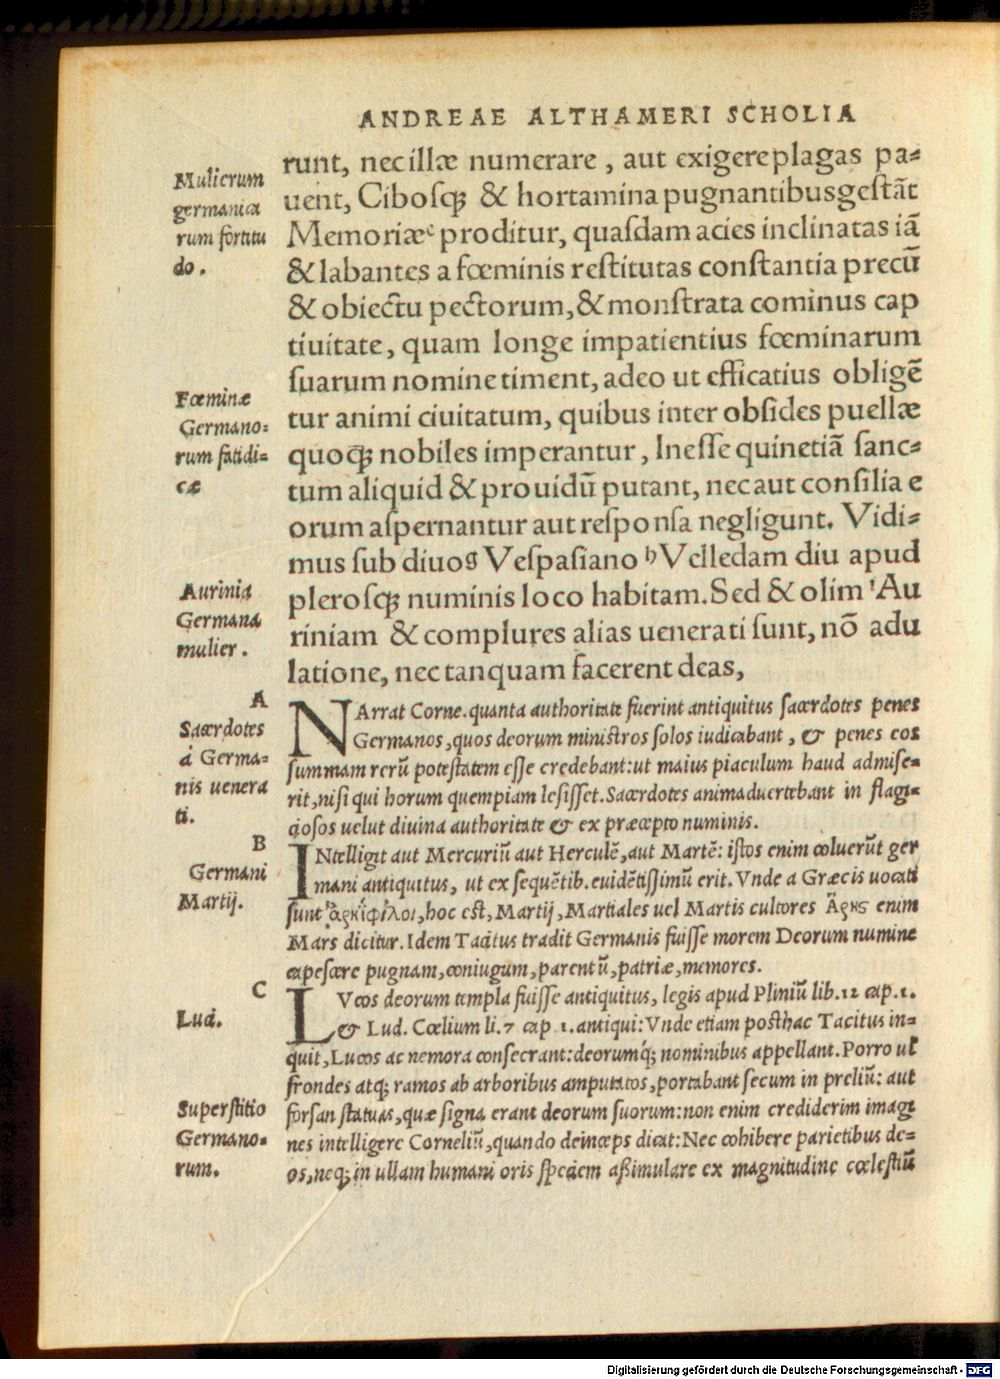 ANDREAE ALTHAMERI SCHOLIA
runt, nec illæ numerare, aut exigere plagas pa⸗
uent, Ciboſqꝫ & hortamina pugnantibus geſtãt
Memoriæᶜ proditur, quaſdam acies inclinatas iã
& labantes a fœminis reſtitutas conſtantia precũ
& obiectu pectorum, & monſtrata cominus cap
tiuitate, quam longe impatientius fœminarum
ſuarum nomine timent, adeo ut efficatius obligẽ
tur animi ciuitatum, quibus inter obſides puellæ
quoqꝫ nobiles imperantur, Ineſſe quinetiã ſanc⸗
tum aliquid & prouidũ putant, nec aut conſilia e
orum aſpernantur aut reſponſa negligunt. Vidi⸗
mus ſub diuoᵍ Veſpaſiano ʰVelledam diu apud
pleroſqꝫ numinis loco habitam. Sed & olim ᶦAu
riniam & complures alias uenerati ſunt, nõ adu
latione, nec tanquam facerent deas,
Mulierum
germanica
rum fortitu
do.
Fœminæ
Germano⸗
rum fatidi⸗
cæ
Aurinia
Germana
mulier.
A
Sacerdotes
à Germa⸗
nis uenera
ti.
NArrat Corne. quanta authoritate fuerint antiquitus ſacerdotes penes
Germanos, quos deorum miniſtros ſolos iudicabant, & penes eos
ſummam rerũ poteſtatem eſſe credebant: ut maius piaculum haud admiſe⸗
rit, niſi qui horum quempiam leſiſſet. Sacerdotes animaduertebant in flagi⸗
cioſos uelut diuina authoritate & ex præcepto numinis.
B
Germani
Martij.
INtelligit aut Mercuriũ aut Herculẽ, aut Martẽ: iſtos enim coluerũt ger
mani antiquitus, ut ex ſequẽtib. euidẽtiſſimũ erit. Vnde a Græcis uocati
ſunt ἀρηΐφιλοι, hoc eſt, Martij, Martiales uel Martis cultores Ἄρης enim
Mars dicitur. Idem Tacitus tradit Germanis fuiſſe morem Deorum numine
capeſcere pugnam, coniugum, parentũ, patriæ, memores.
C
Luci.
LVcos deorum templa fuiſſe antiquitus, legis apud Pliniũ lib. 12 cap. 1.
& Lud. Cœlium li. 7 cap 1. antiqui: Vnde etiam poſthac Tacitus in⸗
quit, Lucos ac nemora conſecrant: deorumq́ꝫ nominibus appellant. Porro ut
frondes atqꝫ ramos ab arboribus amputatos, portabant ſecum in preliũ: aut
forſan ſtatuas, quæ ſigna erant deorum ſuorum: non enim crediderim imagi
nes intelligere Corneliũ, quando deinceps dicat: Nec cohibere parietibus de⸗
os, neqꝫ in ullam humani oris ſpeciem aßimulare ex magnitudine cœleſtiũ
Superſtitio
Germano⸗
rum.
Digitalisierung gefördert durch die Deutsche Forschungsgemeinschaft - DFG